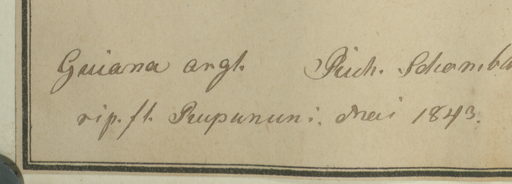 Guiana angl. Rich. Schomb
rip. fl. Rupununi. Mai 1843.